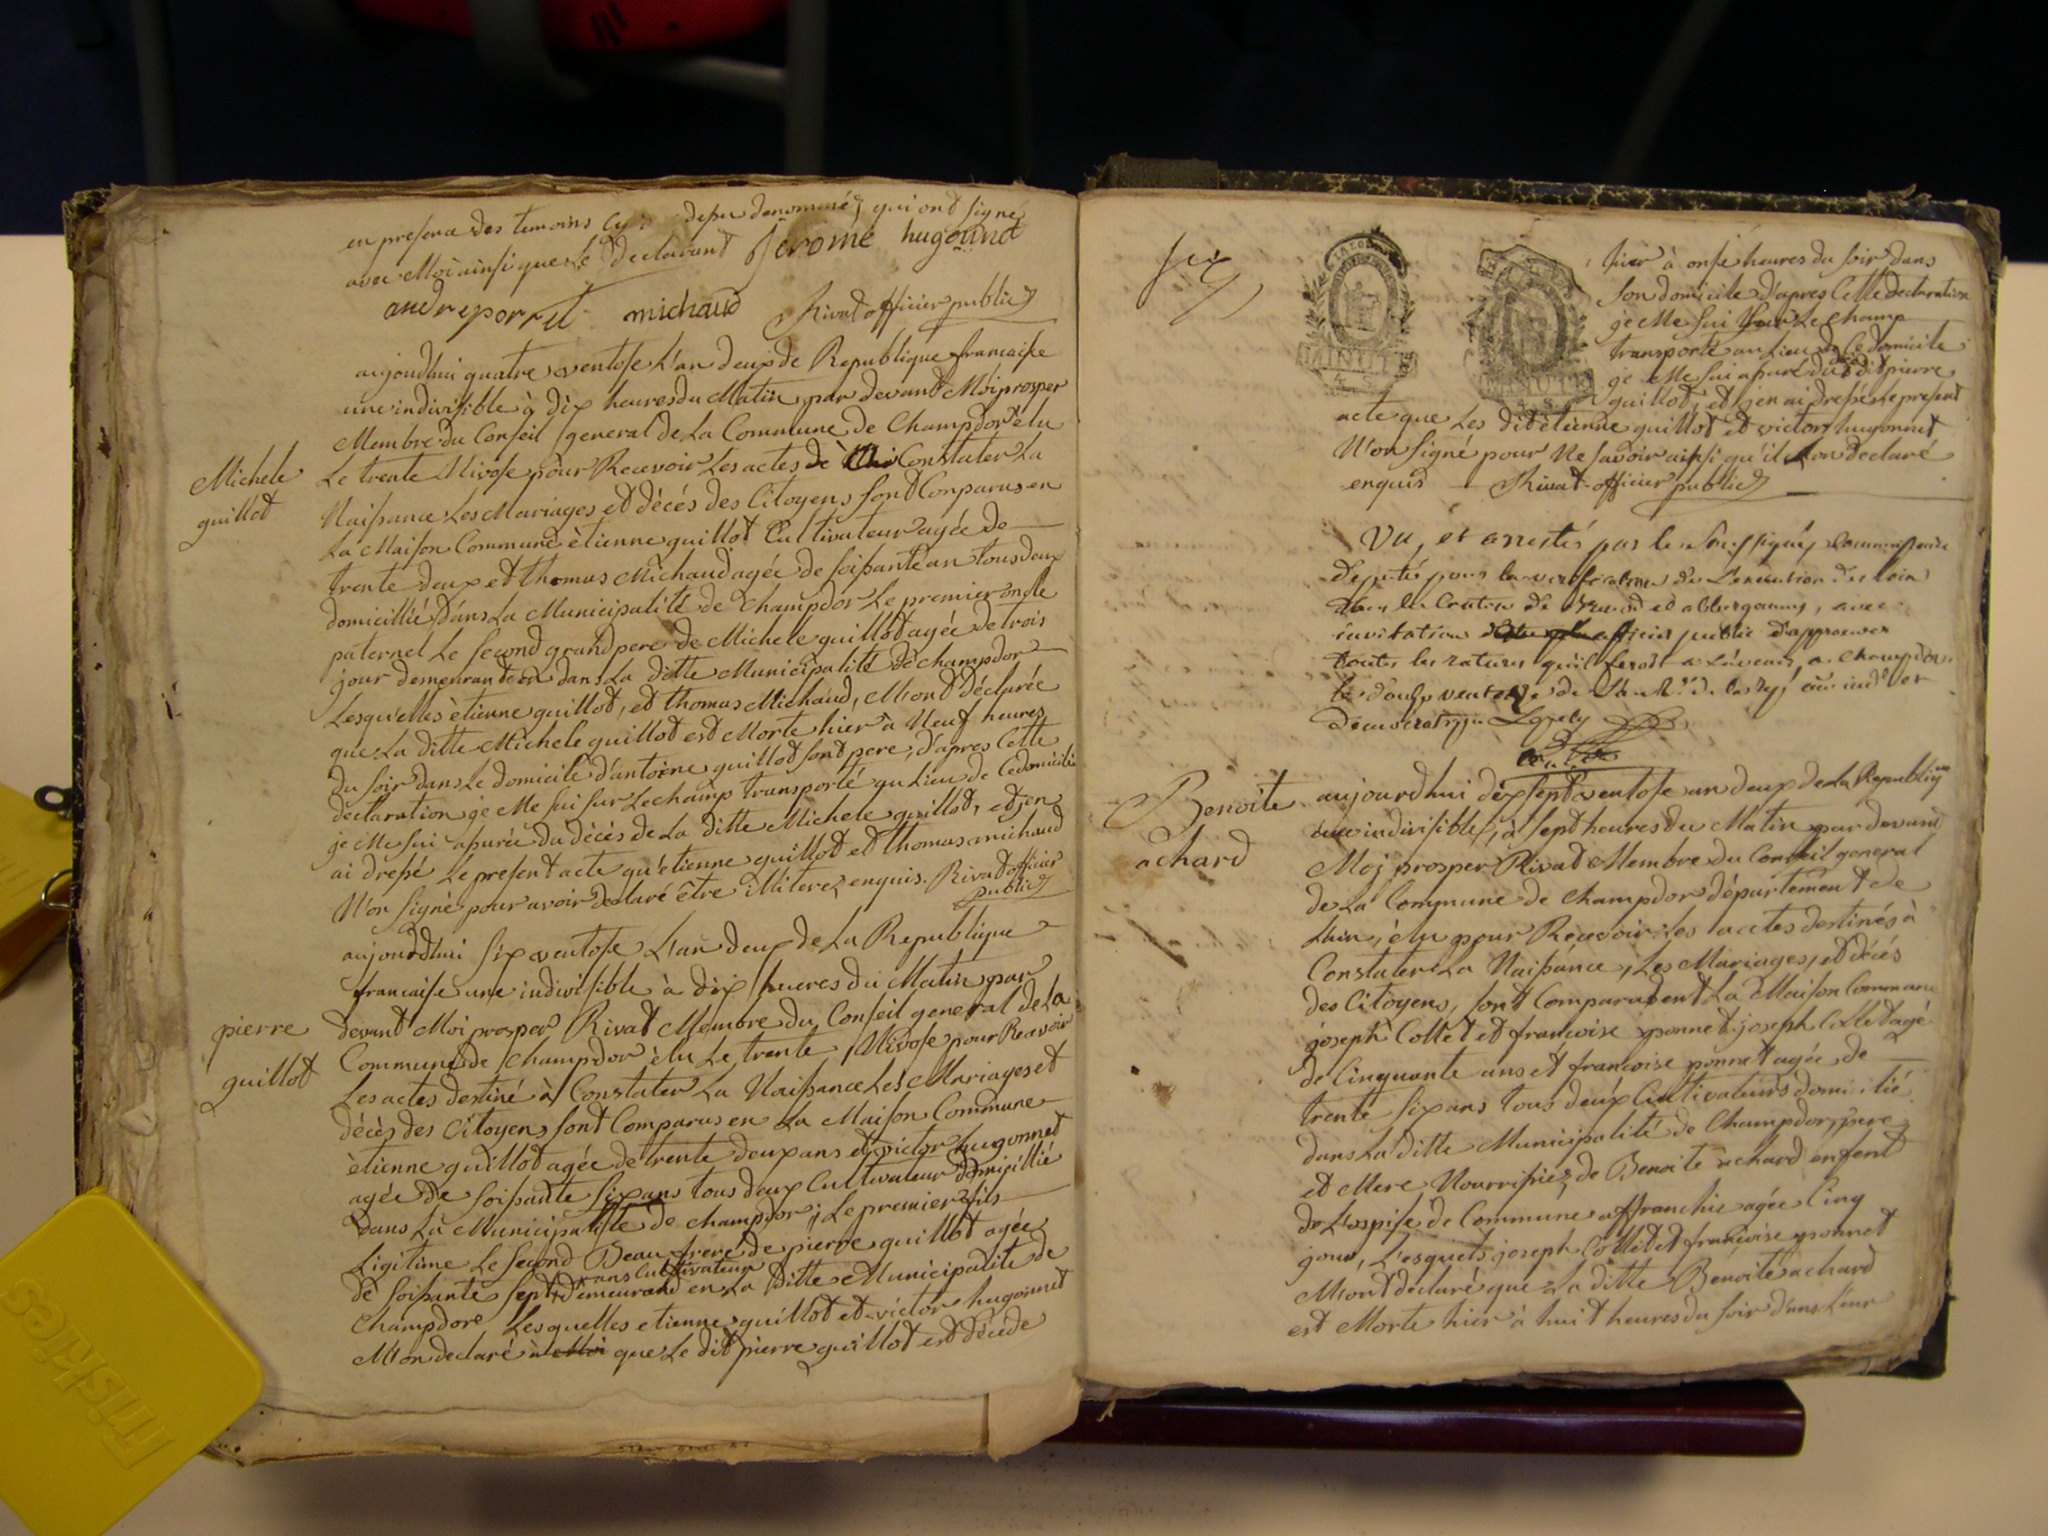 en presence des temoins cy depu denommé, qui ont signé
avec Moi ainsi que Le declarant Jerome hugounet
michaud Rivat officier public
aujourdhui quatre ventose L'an deux de Republique francaise
une indivisible à dix heures du Matin par devant Moi prosper
Membre du Conseil general de La Commune de Champdor élu
Le trente Nivose pour Recevoir Les actes de Constater La
Michele
guillot
Naissance Les Mariages et décés des Citoyens sont Comparus en
La Maison Commune ètienne guillot Cultivateur agée de
trente deux et thomas Michaud agée de soisante an tous deux
domicillié dans La Municipalité de Champdor Le premier oncle
paternel Le second grand pere de Michele guillot agée de trois
jour demeurante en dans La ditte Municipalité de champdor
Lesquelles ètienne guillot, et thomas Michaud, Mont déclarée
que La ditte Michele guillot est Morte hier à Neuf heures
du soir dans Le domicile d'antoine guillot sont pere, d'apres Cette
declaration je Me sui sur Le champ transporté au Lieu de Ce domicile
je Me sui apurée du décés de La ditte Michele guillot, et jen
ai dressé Le present acte qu'étienne guillot et thomas michaud
N'on signé pour avoir declaré être illiterez enquis. Rivat officier
public
aujourdhui six ventose L'an deux de La Republique
francaise une indivisible à dix heures du Matin par
devant Moi prosper Rivat Membre du Conseil general de La
pierre
guillot
Commune de Champdor élu Le trente Nivose pour Recevoir
Les actes destiné à Constater La Naissance Les Mariages et
décès des Citoyens sont Comparus en La Maison Commune
ètienne guillot agée de trente deux ans et victor hugonnet
agée de soisante six ans tous deux Cultivateur domicillié
dans La Municipalité de champdor, Le premier fils
Ligitime Le second Beau frere de pierre guillot agée
ans Cultivateur
de soisante sept demeurand en La ditte Municipalite de
Champdore Lesquelles etienne guillot et victor hugonnet
Mon declaré à Moi que Le dit pierre guillot est décédé
hier à onse heures du soir dans
son domicile d'apres Cette declaration
je Me sui sur Le champ
transporté au Lieu de Ce domicile
je Me sui apuré du dit pierre
guillot, et jen ai dressé le present
acte que Les dit étienne guillot et victor hugonnet
N'on signé pour Ne savoir ainsi qu'il L'on declaré
enquis Rivat officier public
MINUTE
MINUTE
Vu, et arrestés par le soussigné, Commissaire
député pour la verification de L'execution des loix
avec
invitation officier public d'approuver
toutes les ratures qu'il feroit a L'avenir, a champdor
Benoite
achard
aujourdhui dix sept ventose an deux de La Republique
une indivisible, à sept heures du Matin par devant
Moi prosper Rivat Membre du Conseil general
de La Commune de Champdor département de
L'ain, élu pour Recevoir Les actes destinés à
Constater La Naissance, Les Mariages, et décés
des Citoyens, sont Comparut en La Maison Commune
joseph Collet et francoise ponnet joseph Collet agé
de Cinquante ans et francoise ponnet agée de
trente six ans tous deux Cultivateurs domicilié
dans La ditte Municipalité de Champdor, pere
et Mere Nourrisiez de Benoite achard enfent
de L'ospise de Commune affranchie agée Cinq
jour, Lesquels joseph Collet et francoise ponnet
Mont déclaré que La ditte Benoite achard
est Morte hier à huit heures du soir dans Leur